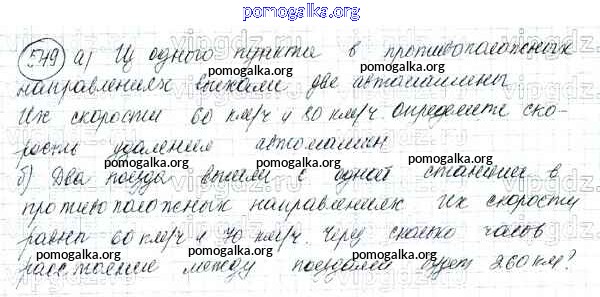 pomogalka.org
549 а) Из одного пункта в противоположных
направлениях выехали две автомашины
pomogalka.org pomogalka.org
Их скорости 60 км/ч и 80 км/ч. Определите ско-
рость удаления автомашин
pomogalka.org pomogalka.org pomogalka.org
б) Два поезда вышли с одной станции в
противоположных направлениях Их скорости
pomogalka.org pomogalka.org
равны 60 км/ч и 70 км/ч. Через сколько часов
расстояние между поездами будет 260 км?
pomogalka.org pomogalka.org pomogalka.org